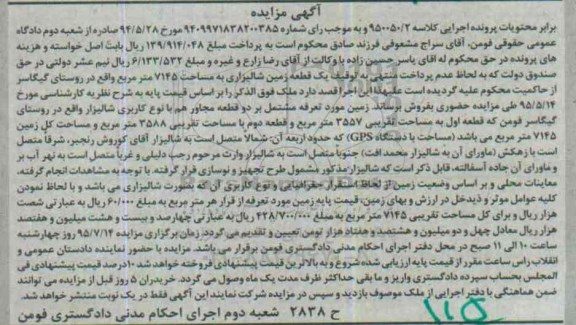 آگهی مزایده
برابر محتویات پرونده اجرایی کلاسه ۹۵۰۰۵۰/۲ و به موجب رای شماره ۹۴۰۹۹۷۱۸۳۸۲۰۰۳۸۵ مورخ ۹۴/۵/۲۸ صادره از شعبه دوم دادگاه
عمومی حقوقی فومن، آقای سراج مشعوفی فرزند صادق محکوم است به پرداخت مبلغ ۱۳۹/۹۱۴/۰۴۸ ریال بابت اصل خواسته و هزینه
های پرونده در حق محکوم له آقای یاسر حسین زاده با وکالت از آقای رضا زارع و غیره و مبلغ ۶/۱۳۳/۵۳۲ ریال نیم عشر دولتی در حق
صندوق دولت که به لحاظ عدم پرداخت منتهی به توقیف یک قطعه زمین شالیزاری به مساحت ۷۱۴۵ متر مربع واقع در روستای گیگاسر
از حاکمیت محکوم علیه گردیده است علیهذا این اجرا قصد دارد ملک فوق الذکر را بر اساس قیمت پایه به شرح نظریه کارشناسی مورخ
۹۵/۵/۱۴ طی مزایده حضوری بفروش برساند. زمین مورد تعرفه مشتمل بر دو قطعه مجاور هم با نوع کاربری شالیزار واقع در روستای
گیگاسر فومن که قطعه اول به مساحت تقریبی ۳۵۵۷ متر مربع و قطعه دوم با مساحت تقریبی ۳۵۸۸ متر مربع و مساحت کل زمین
۷۱۴۵ متر مربع می باشد (مساحت با دستگاه GPS) که حدود اربعه آن: شمالاً متصل است به شالیزار آقای کوروش رنجبر، شرقاً متصل
است با زهکش (ماورای آن به شالیزار محمد آفت) جنوباً متصل است به شالیزار وارث مرحوم رجب دلیلی و غرباً متصل است به نهر آب بر
و ماورای آن جاده آسفالته، قابل ذکر است که شالیزار مذکور مشمول طرح تجهیز و نوسازی قرار گرفته. با توجه به مشاهدات انجام گرفته،
معاینات محلی و بر اساس وضعیت زمین از لحاظ استقرار جغرافیایی و نوع کاربری آن که بصورت شالیزاری می باشد و با لحاظ نمودن
کلیه عوامل موثر و ذیدخل در ارزش و بهای زمین، قیمت پایه زمین مورد تعرفه از قرار هر متر مربع به مبلغ ۶۰/۰۰۰ ریال به عبارتی شصت
هزار ریال و برای کل مساحت تقریبی ۷۱۴۵ متر مربع به مبلغ ۴۲۸/۷۰۰/۰۰۰ ریال به عبارتی چهارصد و بیست و هشت میلیون و هفتصد
هزار ریال معادل چهل و دو میلیون و هشتصد و هفتاد هزار تومن تعیین و تقدیم می گردد. زمان برگزاری مزایده ۹۵/۷/۱۴ روز چهارشنبه
ساعت ۱۰ الی ۱۱ صبح در محل دفتر اجرای احکام مدنی دادگستری فومن برقرار می باشد. مزایده با حضور نماینده دادستان عمومی و
انقلاب راس ساعت مقرر از قیمت پایه ارزیابی شده شروع و به بالاترین قیمت پیشنهادی فروخته خواهد شد ۱۰درصد قیمت پیشنهادی فی
المجلس بحساب سپرده دادگستری واریز و مابقی حداکثر ظرف مدت یک ماه وصول می گردد. خریداران ۵ روز قبل از مزایده می توانند
ضمن هماهنگی با دفتر اجرایی از ملک موصوف بازدید و سپس در مزایده شرکت نمایند این آگهی فقط در یک نوبت منتشر خواهد شد.
ح ۲۸۳۸ شعبه دوم اجرای احکام مدنی دادگستری فومن